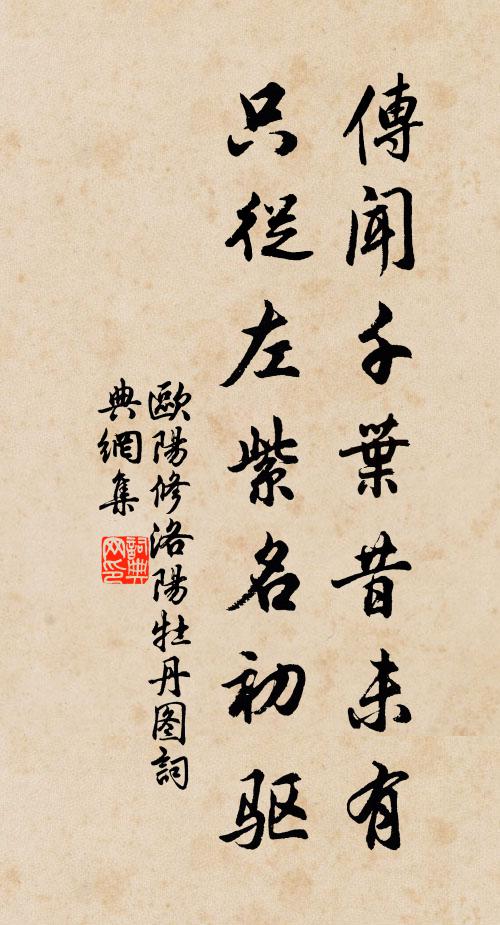 傳聞千葉昔未有
只從左紫名初驱
歐陽修洛陽牡丹图詞
典網集
詞典
网印